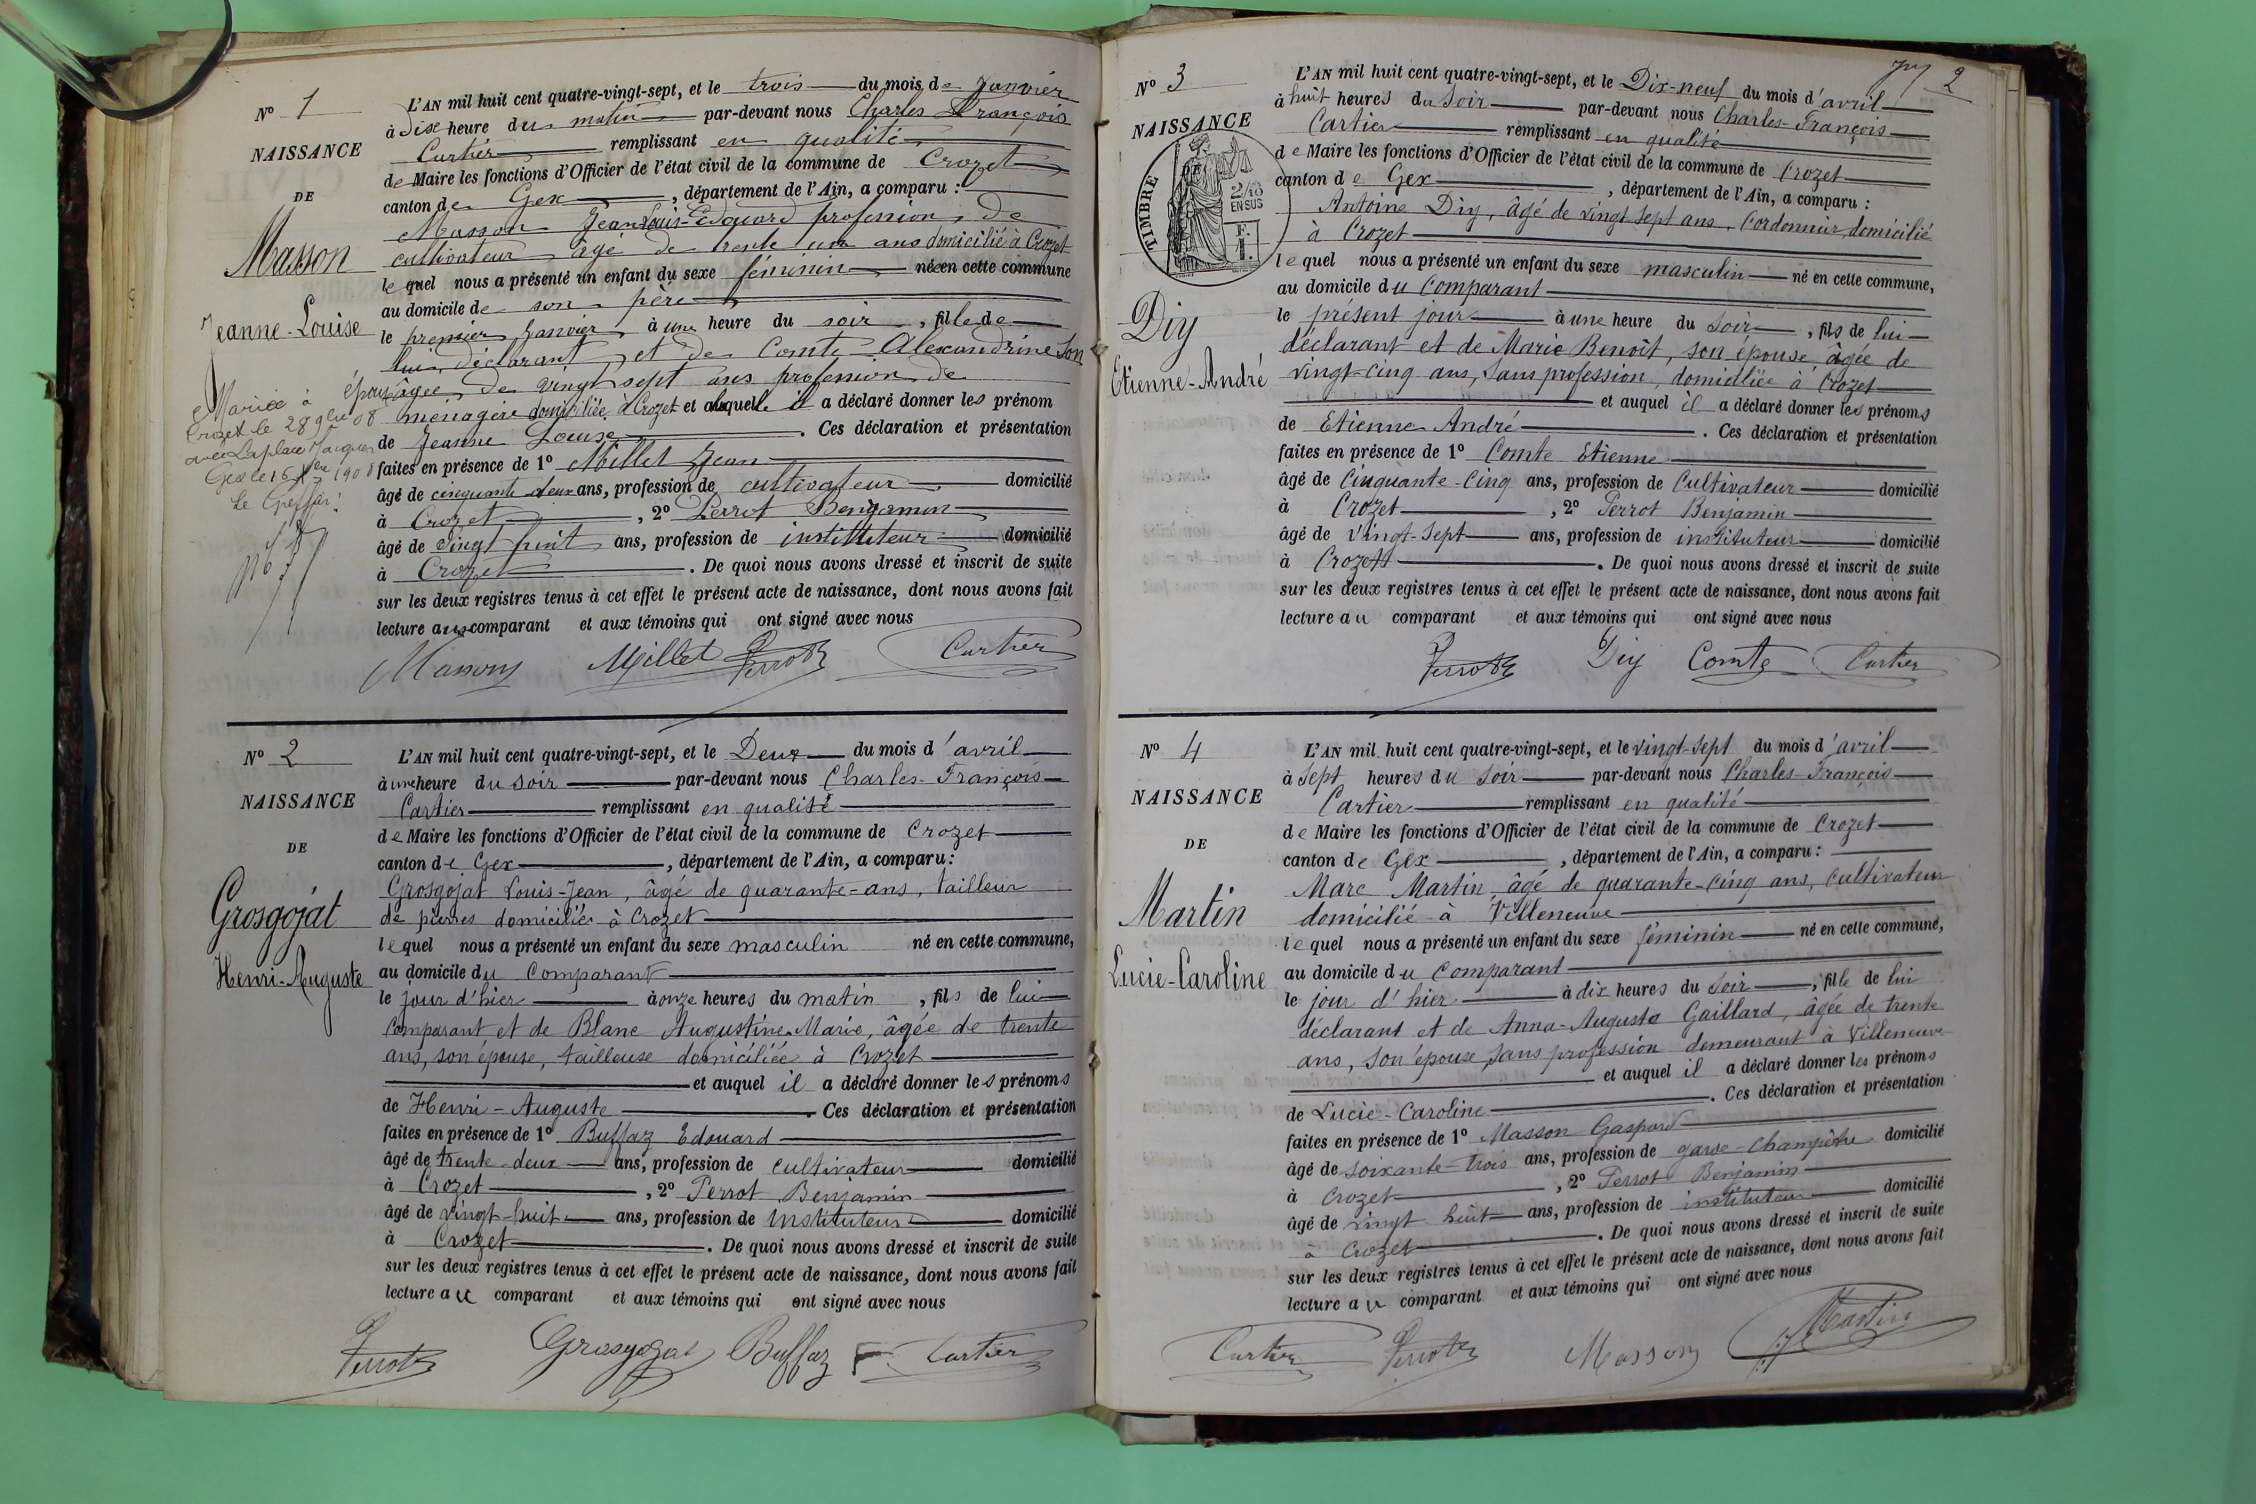 N° 1
NAISSANCE
DE
Masson
Jeanne-Louise
Mariée à
Crozet le 28 9bre 08
avec Laplace Jacques
Gex le 16 Xbre 1908
Le Greffier:
L'AN mil huit cent quatre-vingt-sept, et le trois du mois de Janvier
à dix heure du matin par-devant nous Charles François
Cartier remplissant en qualité
de Maire les fonctions d'Officier de l'état civil de la commune de Crozet
canton de Gex, département de l'Ain, a comparu :
Masson Jean Louis Edouard profession de
cultivateur âgé de trente un ans domicilié à Crozet
lequel nous a présenté un enfant du sexe féminin née en cette commune
au domicile de son père
le premier Janvier à une heure du soir, fille de
lui déclarant et de Comte Alexandrine son
épouse âgée de vingt sept ans profession de
menagère domiciliée à Crozet et auquel il a déclaré donner les prénom
de Jeanne Louise. Ces déclaration et présentation
faites en présence de 1° Millet Jean
âgé de cinquante deux ans, profession de cultivateur domicilié
à Crozet, 2° Perrot Benjamin
âgé de vingt huit ans, profession de instituteur domicilié
à Crozet. De quoi nous avons dressé et inscrit de suite
sur les deux registres tenus à cet effet le présent acte de naissance, dont nous avons fait
lecture au comparant et aux témoins qui ont signé avec nous
Masson Millet Perrot Cartier
N° 2
NAISSANCE
DE
Grosgojat
Henri-Auguste
L'AN mil huit cent quatre-vingt-sept, et le Deux du mois d'avril
à une heure du soir par-devant nous Charles-François
Cartier remplissant en qualité
de Maire les fonctions d'Officier de l'état civil de la commune de Crozet
canton de Gex, département de l'Ain, a comparu :
Grosgojat Louis-Jean, âgé de quarante-ans, tailleur
de pierres domicilié à Crozet
lequel nous a présenté un enfant du sexe masculin né en cette commune,
au domicile du Comparant
le jour d'hier à onze heures du matin, fils de lui
comparant et de Blanc Augustine-Marie, âgée de trente
ans, son épouse, tailleuse domiciliée à Crozet
et auquel il a déclaré donner les prénoms
de Henri-Auguste. Ces déclaration et présentation
faites en présence de 1° Buffaz Edouard
âgé de trente-deux ans, profession de cultivateur domicilié
à Crozet, 2° Perrot Benjamin
âgé de vingt-huit ans, profession de instituteur domicilié
à Crozet. De quoi nous avons dressé et inscrit de suite
sur les deux registres tenus à cet effet le présent acte de naissance, dont nous avons fait
lecture au comparant et aux témoins qui ont signé avec nous
Perrot Grosgojat Buffaz F Cartier
2
N° 3
NAISSANCE
DE
TIMBRE
2/10
EN SUS
F.
1.
Diy
Etienne-André
L'AN mil huit cent quatre-vingt-sept, et le Dix-neuf du mois d'avril
à huit heures du soir par-devant nous Charles-François
Cartier remplissant en qualité
de Maire les fonctions d'Officier de l'état civil de la commune de Crozet
canton de Gex, département de l'Ain, a comparu :
Antoine Diy, âgé de vingt sept ans, cordonnier, domicilié
à Crozet
lequel nous a présenté un enfant du sexe masculin né en cette commune,
au domicile du Comparant
le présent jour à une heure du soir, fils de lui
déclarant et de Marie Benoît, son épouse âgée de
vingt-cinq ans, sans profession, domiciliée à Crozet
et auquel il a déclaré donner les prénoms
de Etienne André. Ces déclaration et présentation
faites en présence de 1° Comte Etienne
âgé de Cinquante-Cinq ans, profession de Cultivateur domicilié
à Crozet, 2° Perrot Benjamin
âgé de vingt-sept ans, profession de instituteur domicilié
à Crozet. De quoi nous avons dressé et inscrit de suite
sur les deux registres tenus à cet effet le présent acte de naissance, dont nous avons fait
lecture au comparant et aux témoins qui ont signé avec nous
Perrot Diy Comte Cartier
N° 4
NAISSANCE
DE
Martin
Lucie-Caroline
L'AN mil huit cent quatre-vingt-sept, et le vingt-sept du mois d'avril
à sept heures du soir par-devant nous Charles-François
Cartier remplissant en qualité
de Maire les fonctions d'Officier de l'état civil de la commune de Crozet
canton de Gex, département de l'Ain, a comparu :
Marc Martin, âgé de quarante-cinq ans, cultivateur
domicilié à Villeneuve
lequel nous a présenté un enfant du sexe féminin né en cette commune,
au domicile du Comparant
le jour d'hier à dix heures du soir, fille de lui
déclarant et de Anna-Augusta Gaillard, âgée de trente
ans, son épouse, sans profession demeurant à Villeneuve
et auquel il a déclaré donner les prénoms
de Lucie-Caroline. Ces déclaration et présentation
faites en présence de 1° Masson Gaspard
âgé de soixante-trois ans, profession de garde-champêtre domicilié
à Crozet, 2° Perrot Benjamin
âgé de vingt huit ans, profession de instituteur domicilié
à Crozet. De quoi nous avons dressé et inscrit de suite
sur les deux registres tenus à cet effet le présent acte de naissance, dont nous avons fait
lecture au comparant et aux témoins qui ont signé avec nous
Cartier Perrot Masson Martin